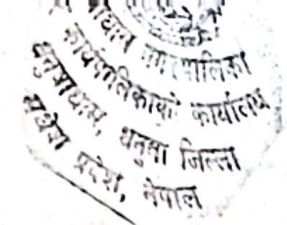 नगरपालिका
कार्यपालिकाको कार्यालय
धनुषाधाम, धनुषा जिल्ला
मधेश प्रदेश, नेपाल